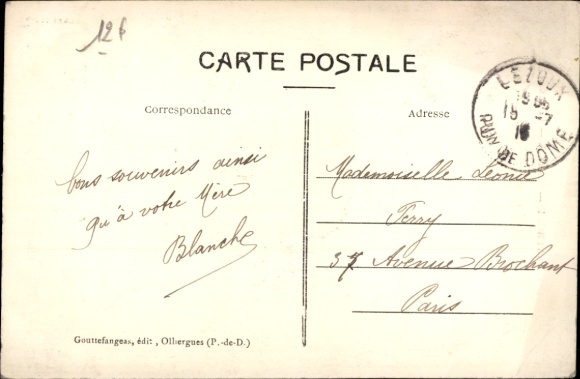 12 f
CARTE POSTALE
Correspondance
Adresse
LEZOUX
PUY DE DOME
bons souvenirs ainsi
qu'à votre Mère
Blanche
Mademoiselle Léonie
Ferry
37 Avenue Brochant
Paris
Gouttefangeas, édit, Olliergues (P.-de-D.)